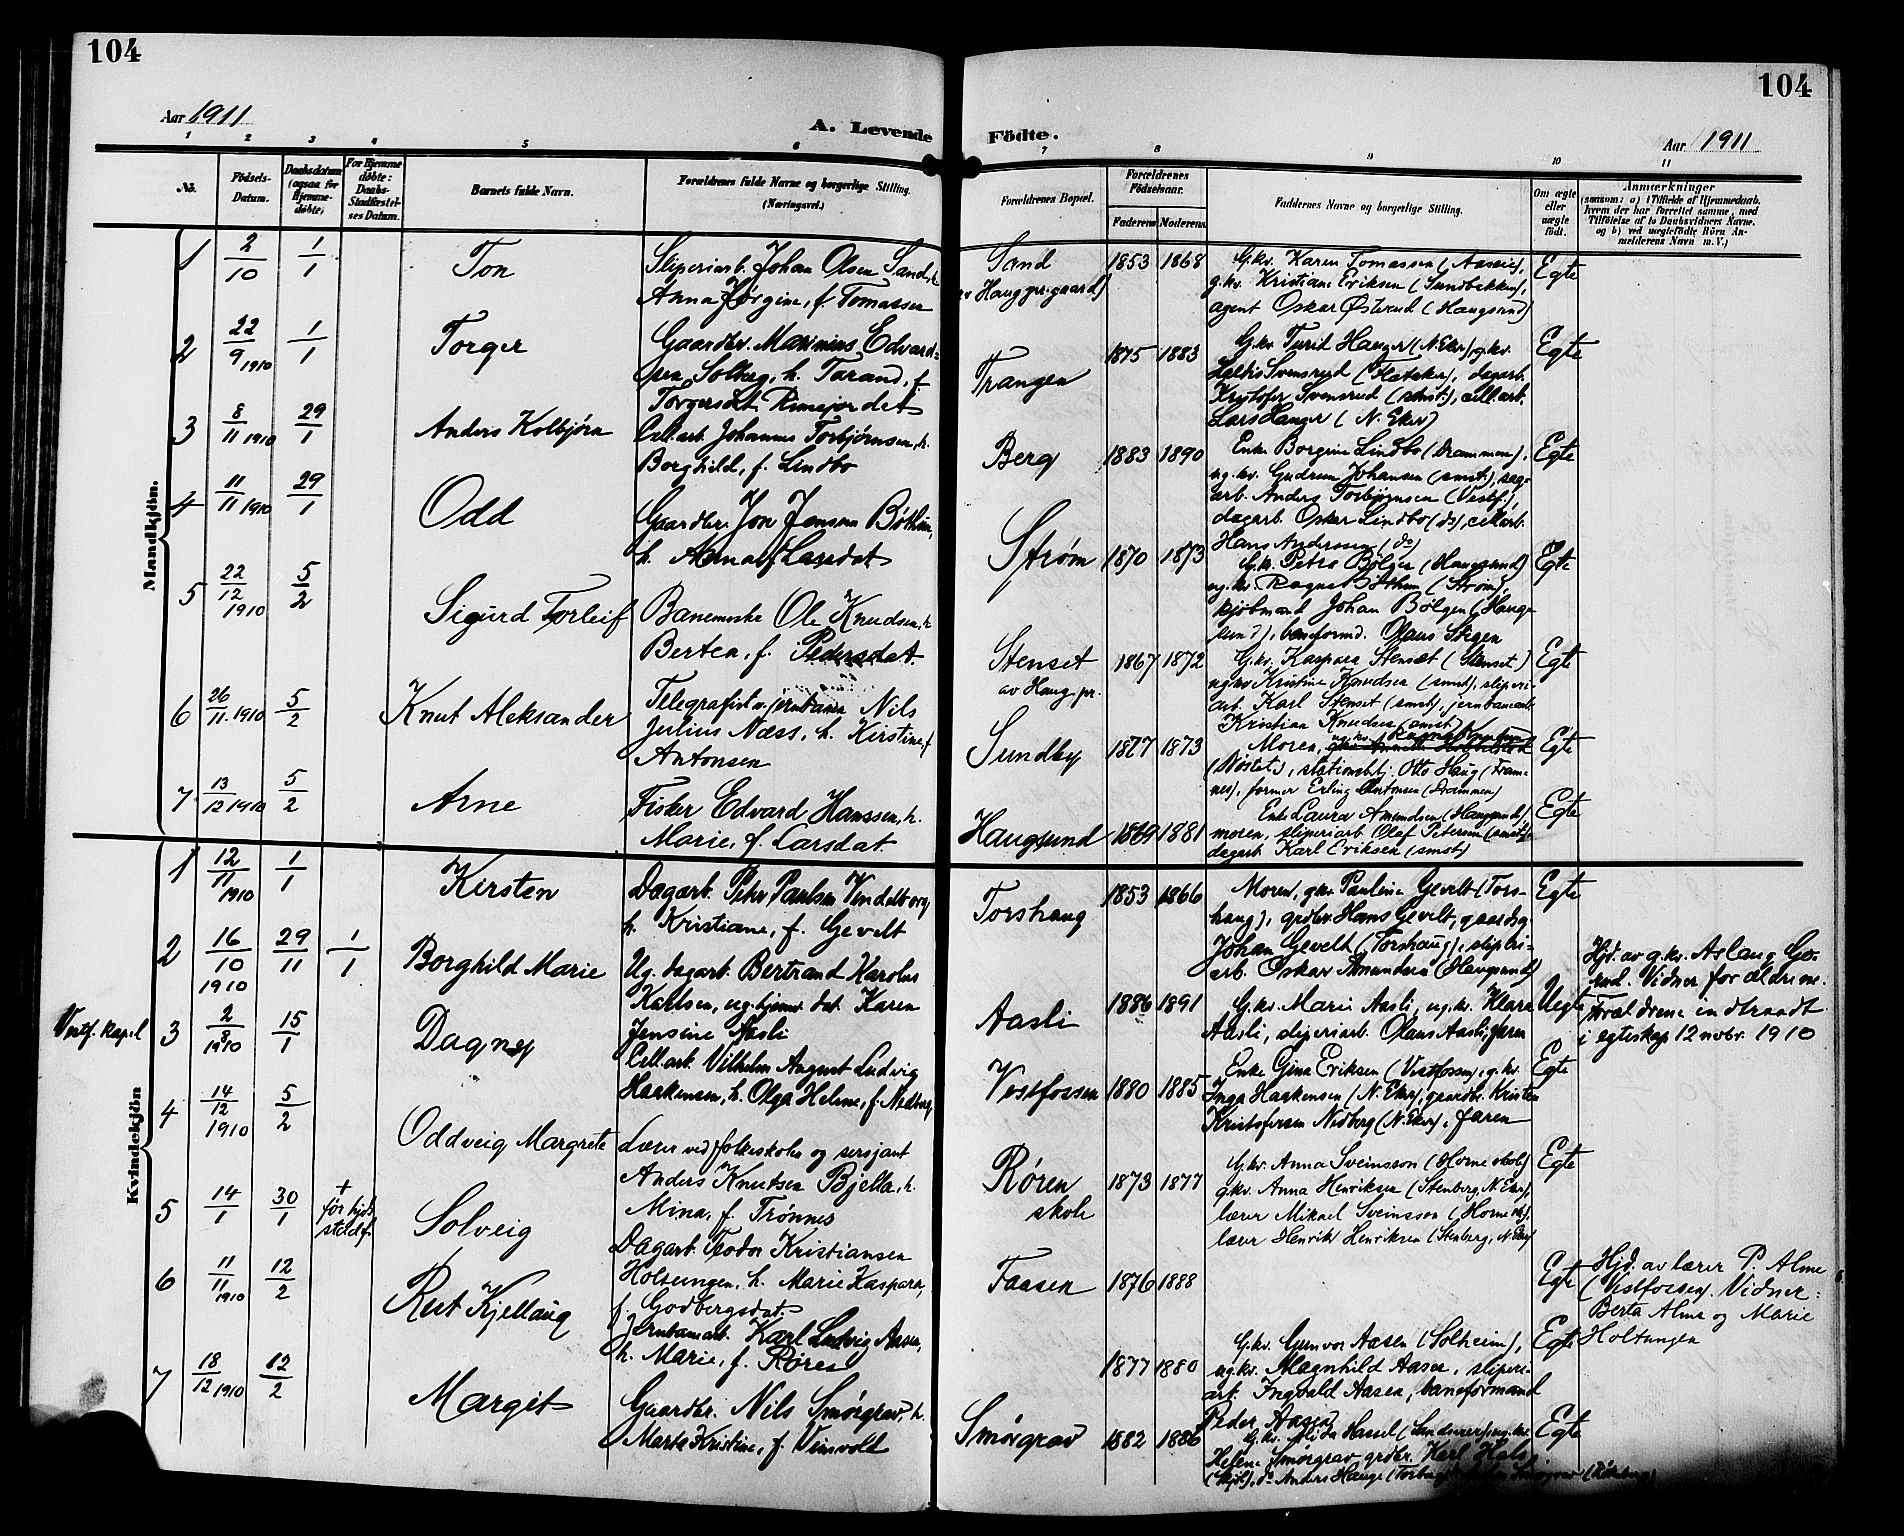 104
104
Aar 1911
A. Levende
Födte.
Aar 1911
1 2 3 4 5 6 7 8 9 10 11
No.
Födsels-Datum.
Daabsdatum (ogsaa for Hjemme-döbte)
For Hjemme döbte: Daabs-Stadfæstel-ses Datum.
Barnets fulde Navn.
Forældrenes fulde Navne og borgerlige Stilling. (Næringsvei.)
Forældrenes Bopæl.
Forældrenes Födselsaar.
Faderens Moderens
Faddernes Navne og borgerlige Stilling.
Om ægte eller uægte födt.
Anmærkninger
(saasom: a) i Tilfælde af Hjemmedaab, hvem der har forrettet samme, med Tilföielse af to Daabsvidners Navne, og b) ved uægtefödte Börn An-melderens Navn m. V.)
Mandkjön.
1 2/10 1/1 Ton
Sliperiarb. Johan Olsen Sand, h.
Anna Jørgine, f. Tomassen
Sand
av Haug pr.gaard)
1853 1868
G.kv. Karen Tomassen (Aaseie),
g.kv. Kristiane Eriksen (Sundbakken),
agent Oskar Østerud (Haugsund)
Egte
2 22/9 1910 1/1 Torger
Gaardbr. Marinius Edvard-
sen Solberg, h. Tarand, f.
Torgersdt. Rimejordet
Trangen
1875 1883
G.kv. Turid Hanger (N.Eker), g.kv.
Svensrud dagarb.
Kristofer Svensrud (smst.), cell.arb.
Lars Hanger (N. Eker)
Egte
3 8/11 1910 29/1 Anders Kolbjørn
Cell.arb. Johannes Torbjørnsen, h.
Borghild, f. Lindbo
Berg
1883 1890
Enke Borgine Lindbo (Drammen),
ug.kv. Gudrun Johansen (smst.), sag-
arb. Anders Torbjørnsen (Vestf.),
dagarb. Oskar Lindbo (do), cellarb.
Hans Anderssen (do)
Egte
4 11/11 1910 29/1 Odd
Gaardbr. Jon Jensen Bøthun,
h. Anna f. Larsdat.
Strøm
1870 1873
G.kv. Petra Bølgen (Haugsund)
ug.kv. Ragna Bøthun (Strøm),
kjøbmand Johan Bølgen (Haug-
sund), baneformd. Olaus Stegen
Egte
5 22/12 1910 5/2 Sigurd Torleif
Banevokter Ole Knudsen, h.
Bertea, f. Pedersdat.
Stenset
av Haug pr.
1867 1872
G.kv. Kaspara Stenset (Stenset)
ug.kv Kristine Knudsen (smst), sliperi-
arb. Karl Stenset (smst), jernbanearb.
Kristian Knudsen (smst)
Egte
6 26/11 1910 5/2 Knut Aleksander
Telegrafist v. jernbanen Nils
Julius Næss, h. Kirstine, f.
Antonsen
Sundby
1877 1873
Moren, ug.kv.
stationsbtj. Otto Haug (Fram-
nes), former Erling Antonsen (Drammen)
Egte
7 13/12 1910 5/2 Arne
Fisker Edvard Hanssen, h.
Marie, f. Larsdat.
Haugsund
1869 1881
Enke Laura Amundsen (Haugsund),
moren, sliperiarb. Olaf Petersen (smst),
dagarb. Karl Eriksen (smst)
Egte
Kvindekjön
1 12/11 1910 1/1 Kirsten
Dagarb. Peter Paulsen Vendelborg,
h. Kristiane, f. Gevelt
Torshaug
1853 1866
Moren, gkv. Pauline Gevelt (Tors-
haug), grdbr Hans Gevelt, gaardsg.
Johan Gevelt (Torshaug), sliperi-
arb. Oskar Amundsen (Haugsund)
Egte
2 16/10 1910 29/11 1/1 Borghild Marie
Ug. dagarb. Bertrand Karolus
Karlsen, ug. hjemv. dat. Karen
Jensine Aasli
Aasli
1886 1891
G.kv. Marie Aasli, ug.kv. Klara
Aasli, sliperiarb. Olaus Aasli, faren
Uegte
Hjd. av g.kv. Aslaug Go-
rud. Vidner forældrene.
Forældrene indtraadt
i egteskap 12 novbr. 1910
Vestf. kapel
3 2/8 1910 15/1 Dagny
Cellarb. Vilhelm August Ludvig
Haakensen, h. Olga Helene, f. Nedberg
Vestfossen
1880 1885
Enke Gina Eriksen (Vestfossen), g.kv.
Inga Haakensen (N. Eker), gaardbr. Kristen
Kristofersen Nedberg (N. Eker), faren
Egte
4 14/12 1910 5/2 Oddveig Margrete
Lærer ved folkeskolen og sersjant
Anders Knutsen Bjella, h.
Mina, f. Trønnes
Røren
skole
1873 1877
G.kv. Anna Sveinsson (Horne skole)
g.kv. Anna Henriksen (Stenberg, N. Eker),
lærer Mikael Sveinsson (Horne sk),
lærer Henrik Henriksen (Stenberg, N. Eker)
Egte
5 14/1 30/1 + før hjd. stadf. Solveig
Dagarb. Teodor Kristiansen
Holtungen, h. Marie Kaspara,
f. Godbergsdat.
Faasen
1876 1888
Egte
Hjd. av lærer P. Alme
(Vestfossen). Vidner:
Berta Alme og Marie
Holtungen
6 11/11 1910 12/2 Rut Kjellaug
Jernbanarb. Karl Ludvig Aasen,
h. Marie, f. Røren
1877 1880
G.kv. Gunvor Aasen (Solheim),
ug.kv. Magnhild Aasen, sliperi-
arb. Ingvald Aasen, baneformand
Peder Aasen
Egte
7 18/12 1910 12/2 Margit
Gaardbr. Nils Smørgrav, h.
Marta Kristine, f. Vinsvold
Smørgrav
1882 1886
G.kv. Alida Hassel ug.kv.
Helene Smørgrav, grdbr. Karl Hals
do. Anders Hauge
Egte